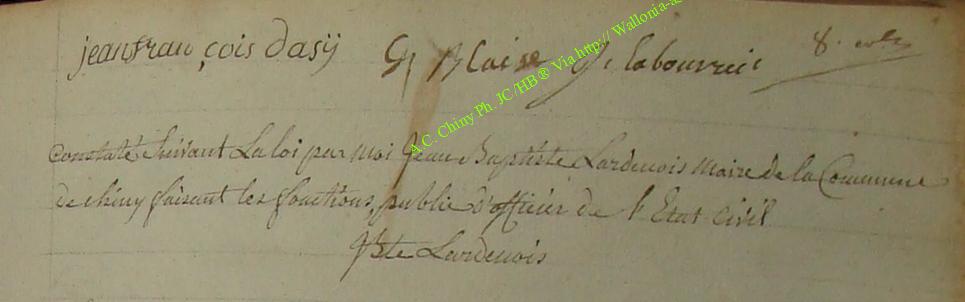 jeanfran çois dasÿ G Blaise J. labourrie
Constaté Suivant La loi par Moi Jean Baptiste Lardenois Maire de la Commune
de chiny faisant les fonctions publie d'officier de l'Etat civil
JBte Lardenois
A.C. Chiny Ph. JC/HB ® Via http:// Wallonia-a